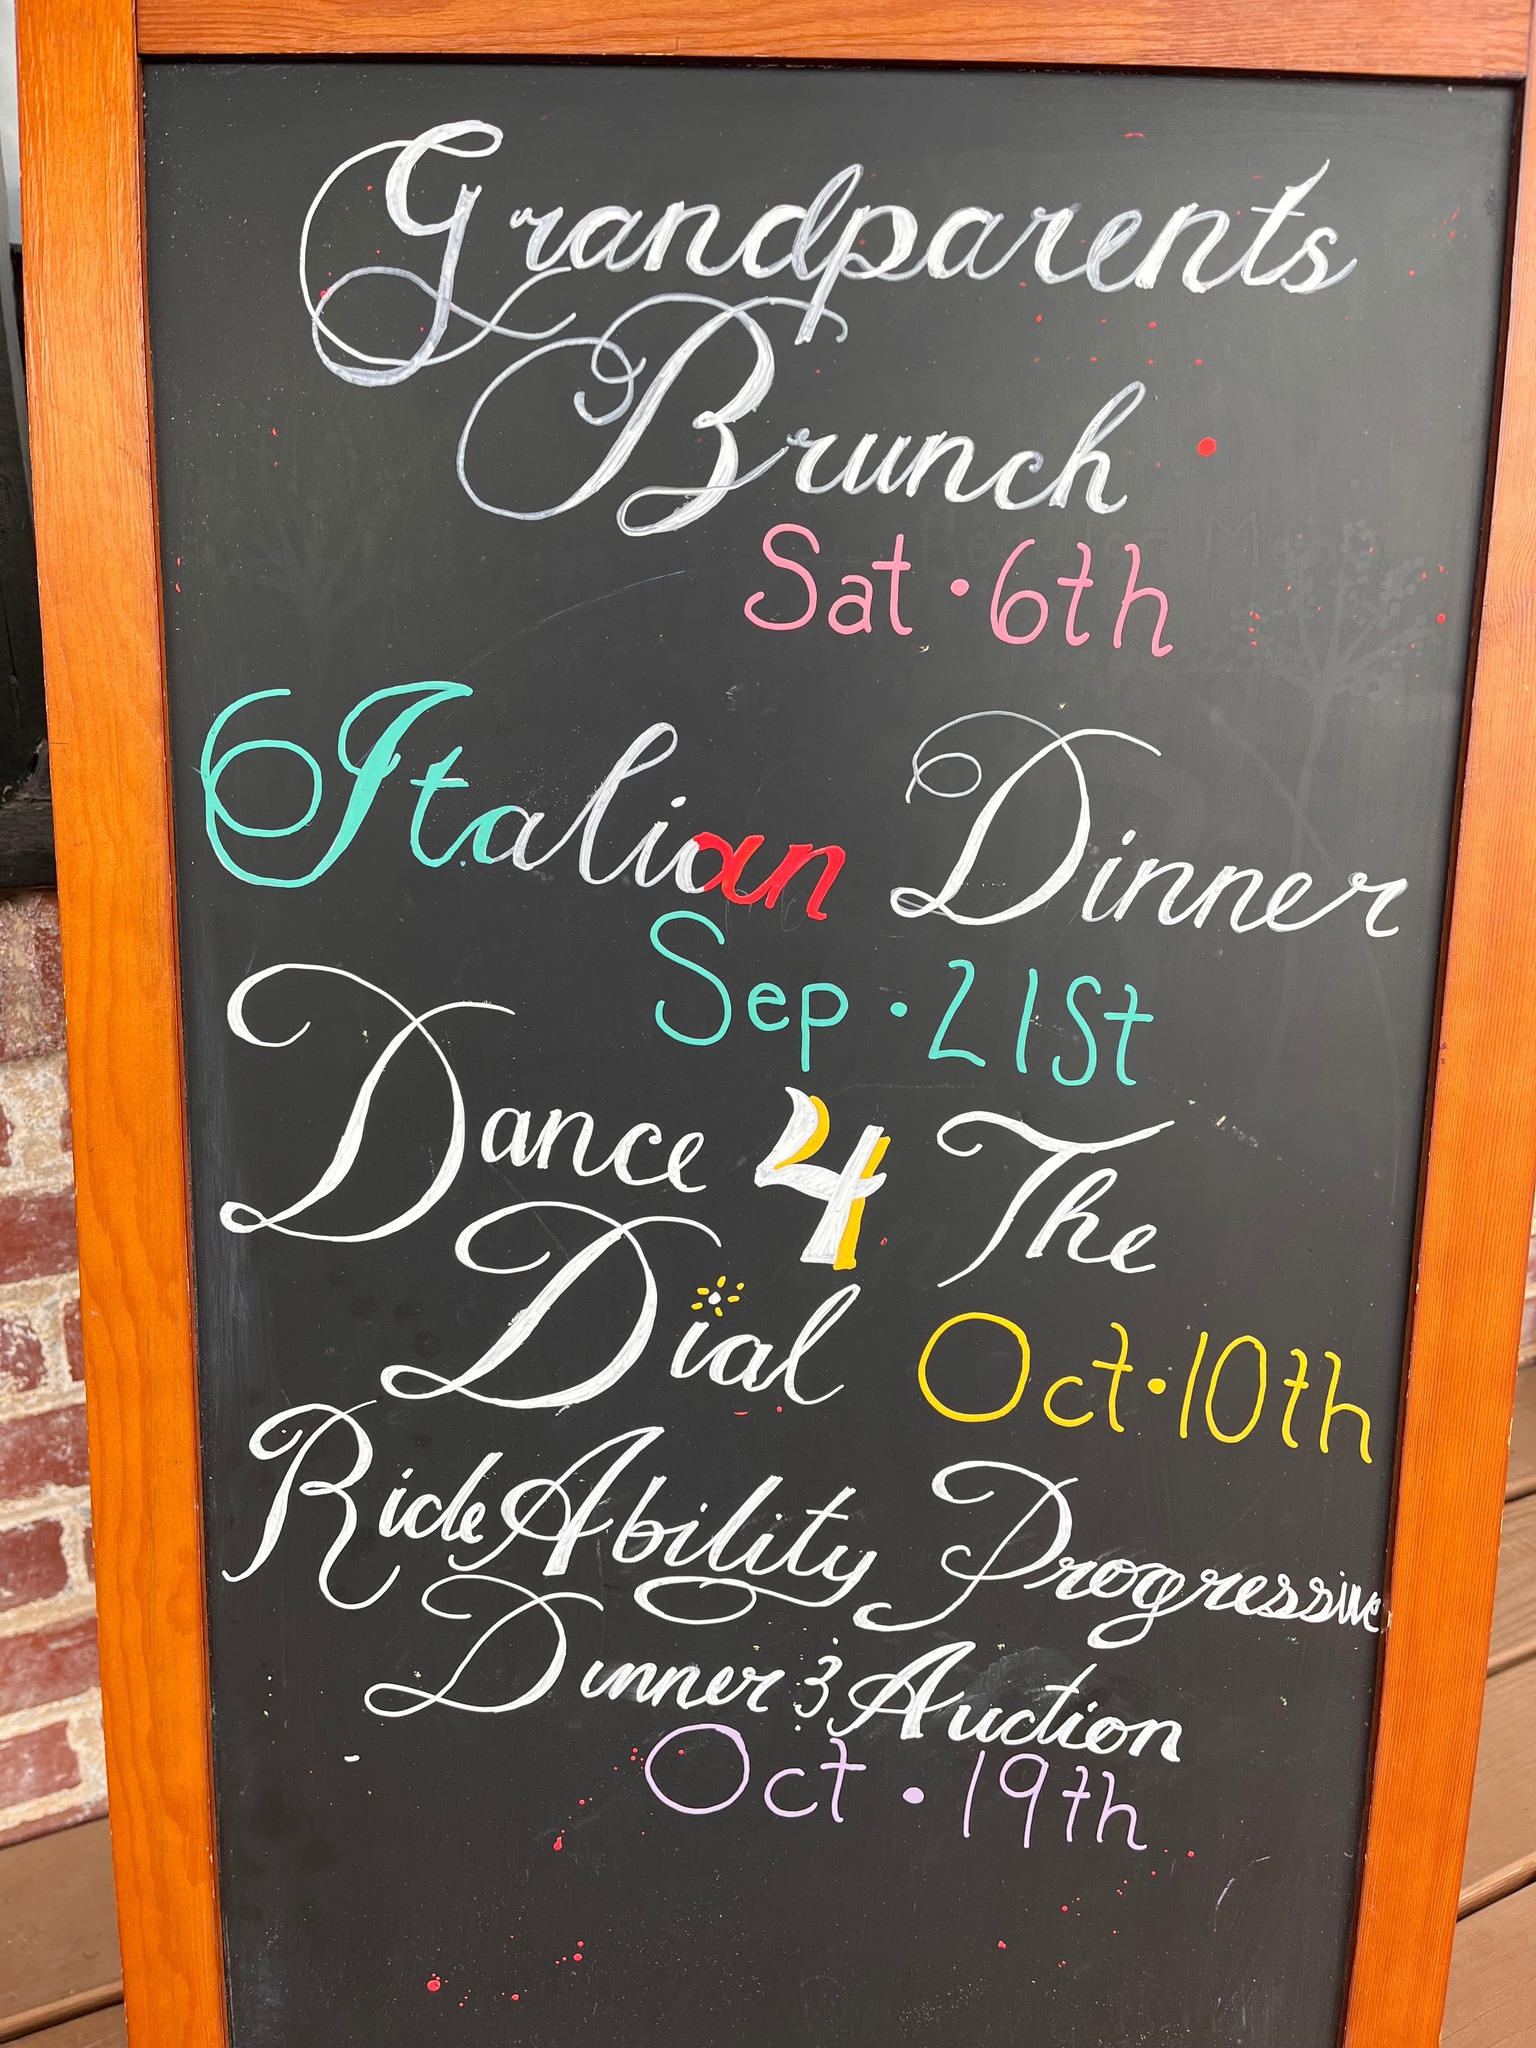 Grandparents
Brunch
Sat · 6th
Italian Dinner
Sep · 21st
Dance 4 The
Dial Oct · 10th
RideAbility Progressive
Dinner & Auction
Oct · 19th